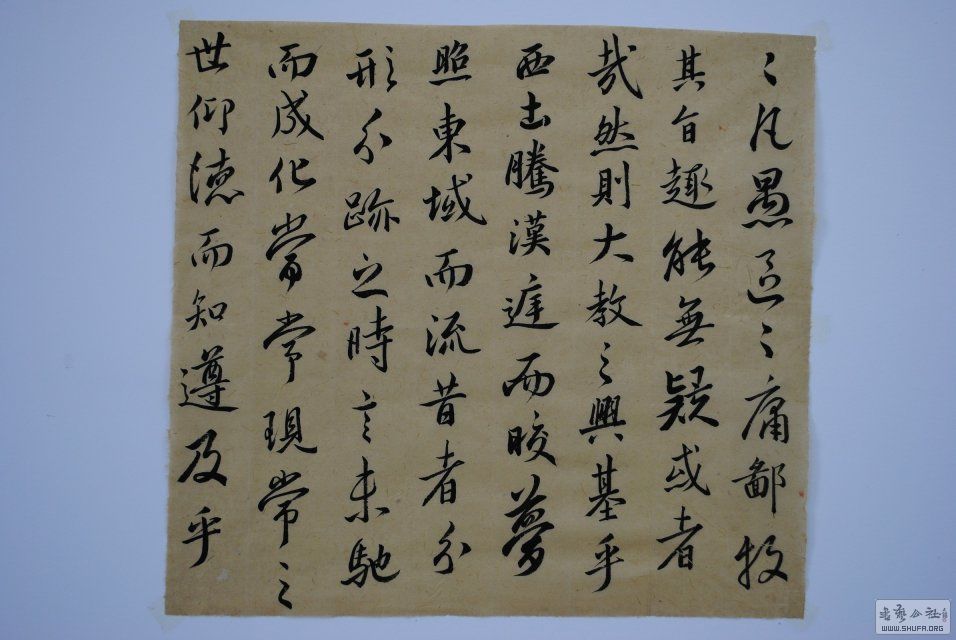 〻凡愚區〻庸鄙投
其旨趣能無疑或者
哉然則大教之興基乎
西土騰漢庭而皎夢
照東域而流昔者分
形分跡之時言未馳
而成化當常現常之
世仰德而知遵及乎
WWW.SHUFA.ORG